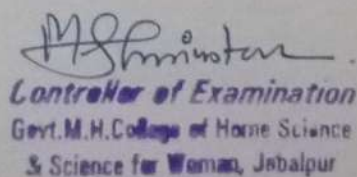 Controller of Examination
Govt.M.H.College of Home Science
& Science for Woman, Jabalpur